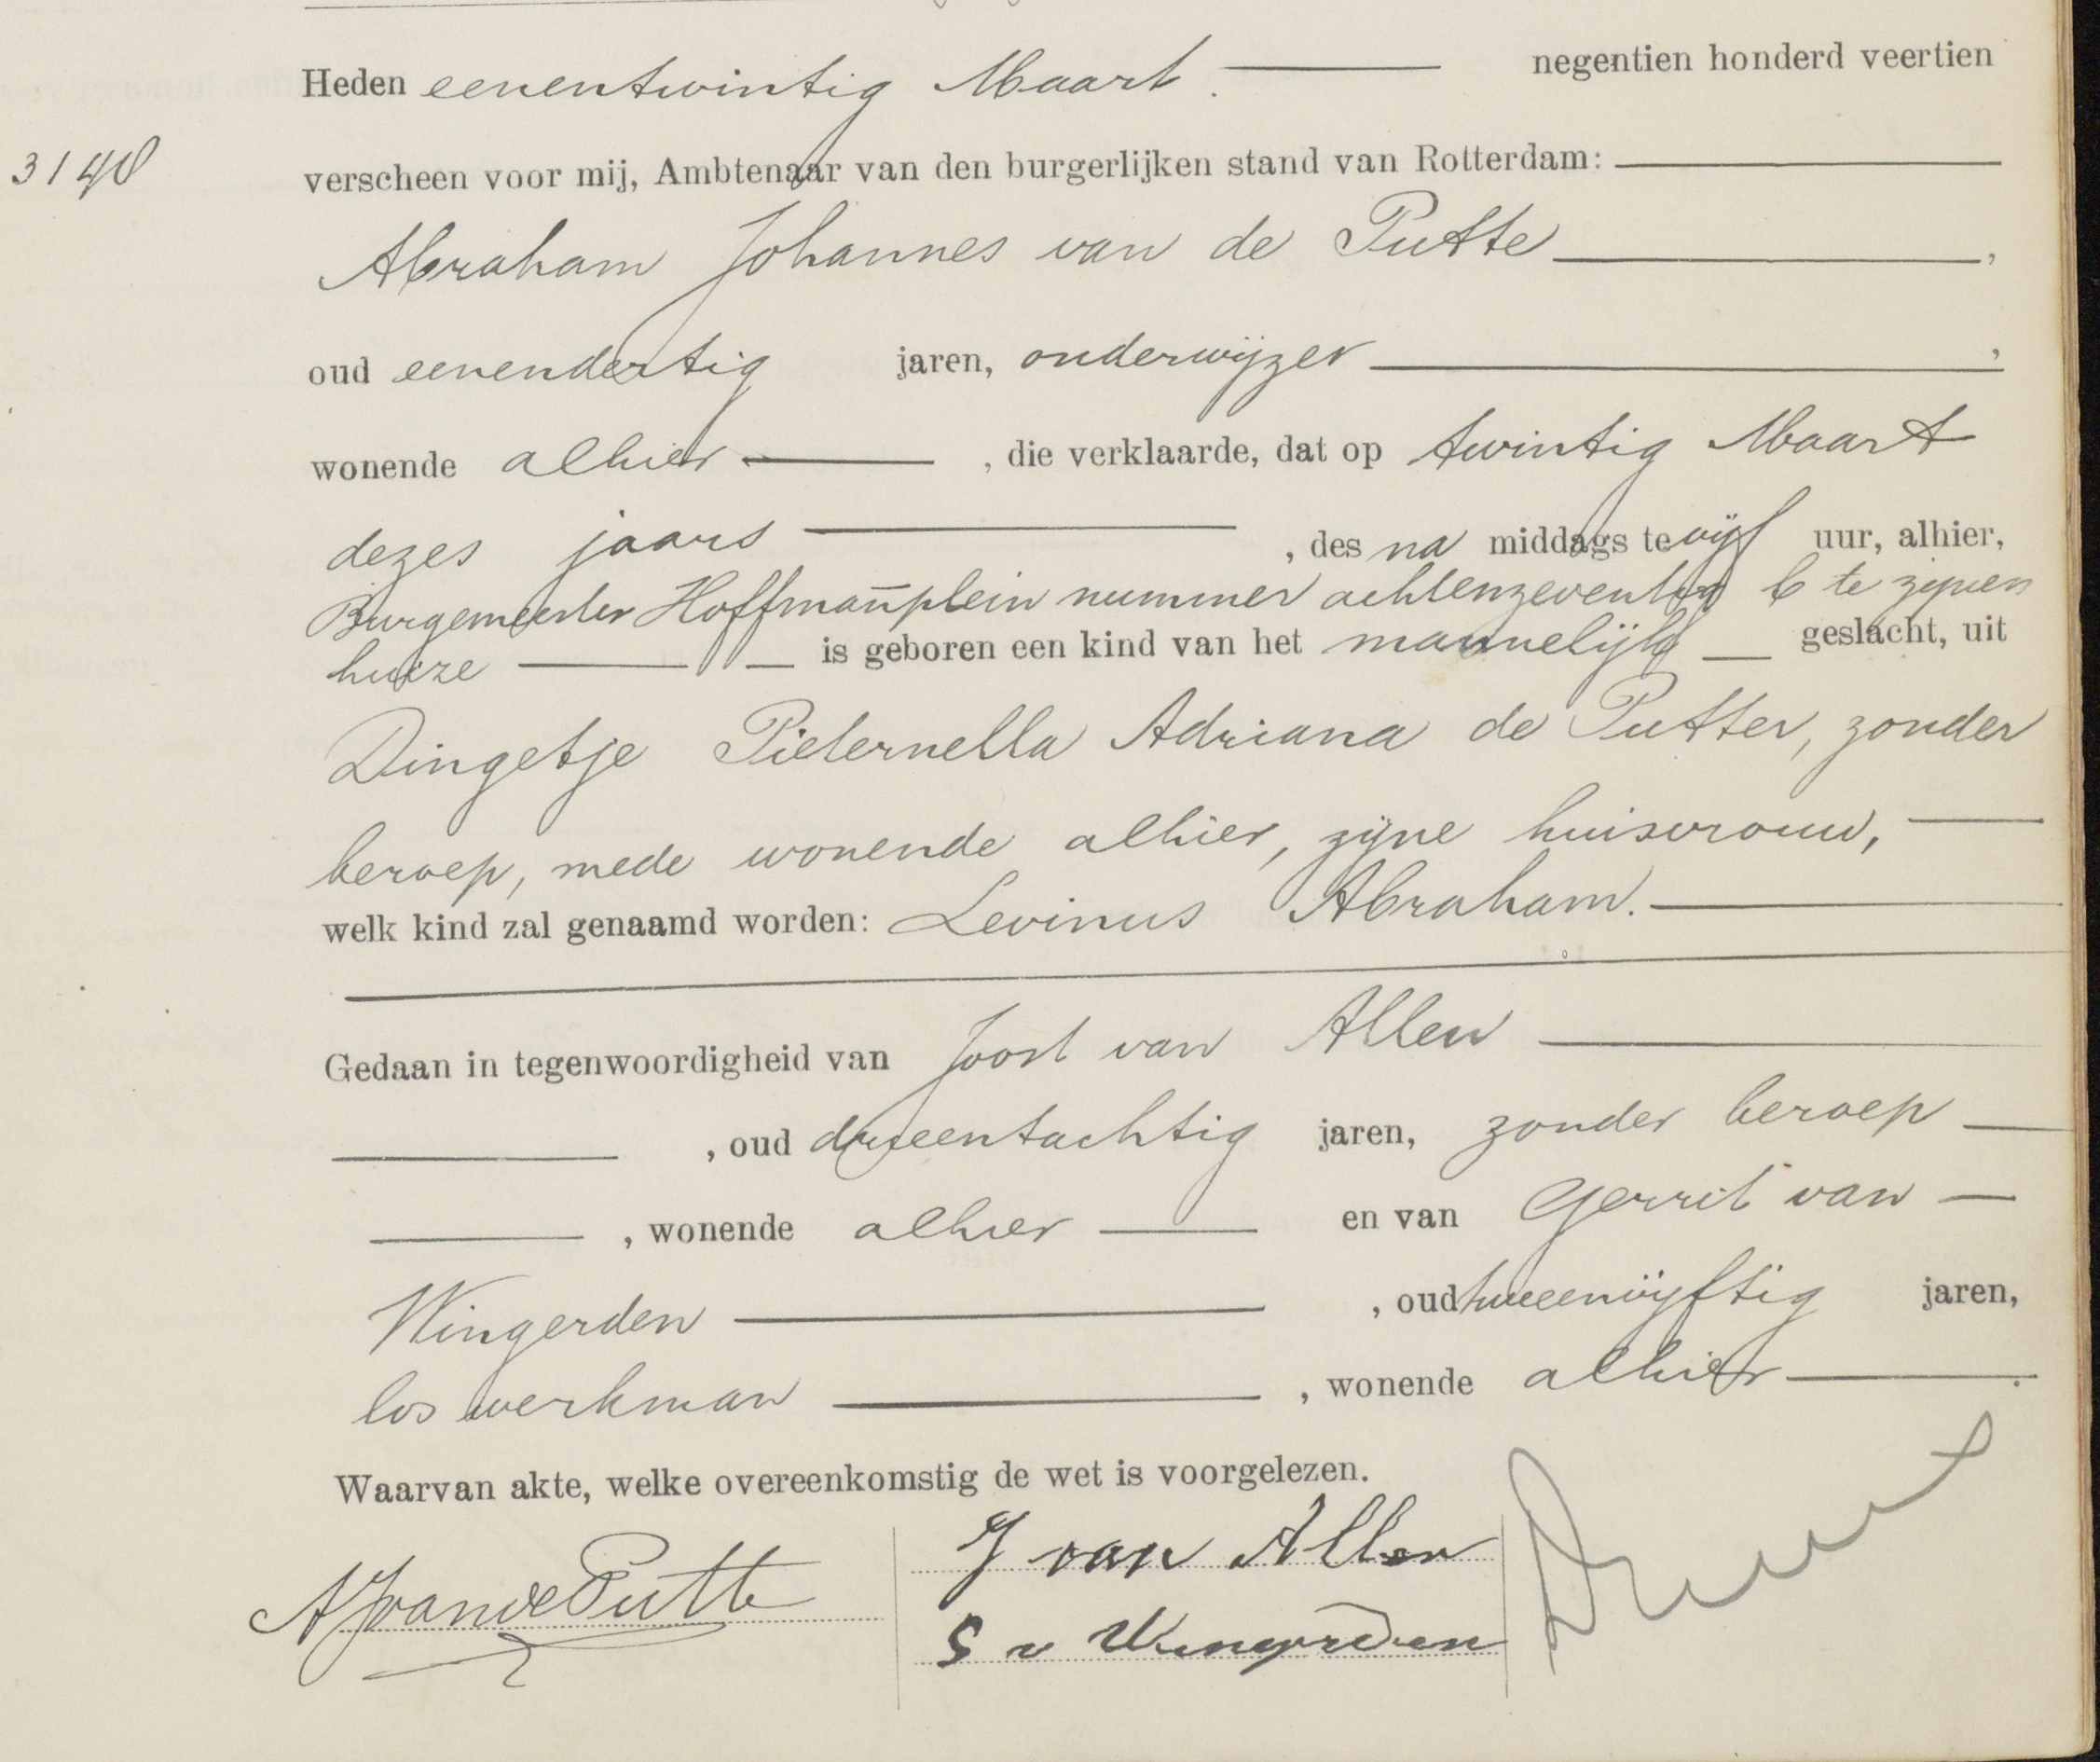 Heden eenentwintig Maart. negentien honderd veertien
3140
verscheen voor mij, Ambtenaar van den burgerlijken stand van Rotterdam:
Abraham Johannes van de Putte,
oud eenendertig jaren, onderwijzer,
wonende alhier, die verklaarde, dat op twintig Maart
dezes jaars, des na middags te vijf uur, alhier,
Burgemeester Hoffmanplein nummer achtenzeventig b te zijnen
huize is geboren een kind van het mannelijk geslacht, uit
Dingetje Pieternella Adriana de Putter, zonder
beroep, mede wonende alhier, zijne huisvrouw,
welk kind zal genaamd worden: Levinus Abraham.
Gedaan in tegenwoordigheid van Joost van Allen
, oud drieentachtig jaren, zonder beroep
, wonende alhier en van Gerrit van
Wingerden, oud tweeenvijftig jaren,
los werkman, wonende alhier.
Waarvan akte, welke overeenkomstig de wet is voorgelezen.
J van Allen
AJvandePutte
v Wingerden